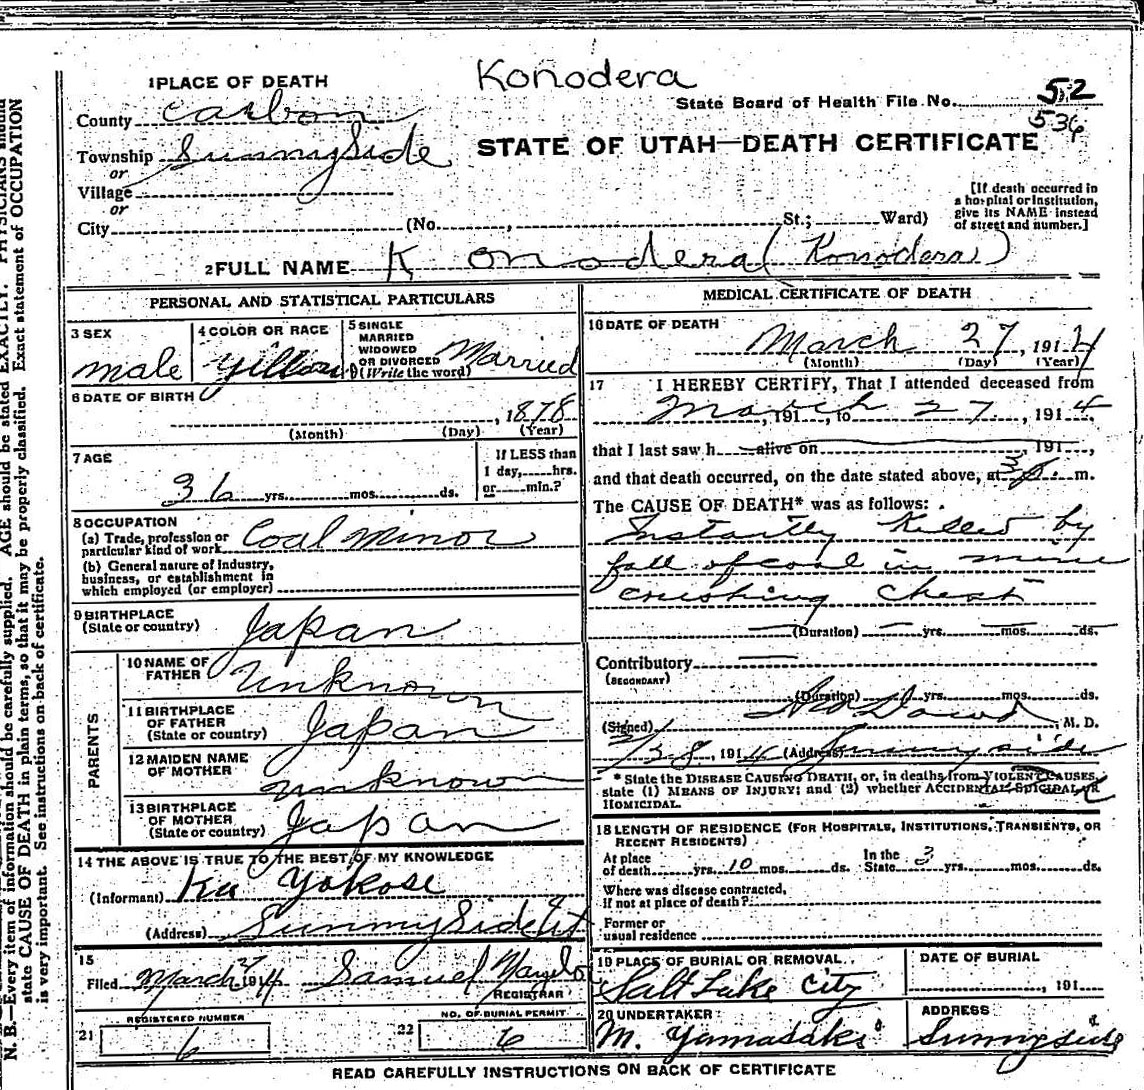 Konodera
1 PLACE OF DEATH
State Board of Health File No. 52
536
County Carbon
STATE OF UTAH—DEATH CERTIFICATE
Township Sunnyside
or
Village
or
City (No. , St.; Ward)
[If death occurred in
a hospital or institution,
give its NAME instead
of street and number.]
2 FULL NAME K onodera (Konodera)
PERSONAL AND STATISTICAL PARTICULARS
3 SEX
male
4 COLOR OR RACE
Yillow
5 SINGLE
MARRIED
WIDOWED
OR DIVORCED
(Write the word)
Married
6 DATE OF BIRTH
, 1878
(Month) (Day) (Year)
7 AGE
36 yrs. mos. ds.
If LESS than
1 day, hrs.
or min.?
8 OCCUPATION
(a) Trade, profession or
particular kind of work Coal Minor
(b) General nature of industry,
business, or establishment in
which employed (or employer)
9 BIRTHPLACE
(State or country) Japan
PARENTS
10 NAME OF
FATHER Unknown
11 BIRTHPLACE
OF FATHER
(State or country) Japan
12 MAIDEN NAME
OF MOTHER unknown
13 BIRTHPLACE
OF MOTHER
(State or country) Japan
14 THE ABOVE IS TRUE TO THE BEST OF MY KNOWLEDGE
(Informant) Ku Yokose
(Address) Sunnyside Ut
15
Filed March 27 1914 Samuel
REGISTRAR
REGISTERED NUMBER
21 6
NO. OF BURIAL PERMIT
22 6
MEDICAL CERTIFICATE OF DEATH
16 DATE OF DEATH
March 27, 1914
(Month) (Day) (Year)
17 I HEREBY CERTIFY, That I attended deceased from
March, 191 to 27, 1914
that I last saw h alive on 191 ,
and that death occurred, on the date stated above, at 3 p. m.
The CAUSE OF DEATH* was as follows:
Instantly Killed by
fall of coal in mine
crushing Chest
(Duration) yrs. mos. ds.
Contributory
(SECONDARY)
(Duration) yrs. mos. ds.
(Signed) Dowd M. D.
3/28, 1914 (Address) Sunnyside
* State the DISEASE CAUSING DEATH, or, in deaths from VIOLENT CAUSES,
state (1) MEANS OF INJURY; and (2) whether ACCIDENTAL, SUICIDAL, or
HOMICIDAL.
18 LENGTH OF RESIDENCE (FOR HOSPITALS, INSTITUTIONS, TRANSIENTS, OR
RECENT RESIDENTS)
At place
of death yrs. 10 mos. ds.
In the
State 3 yrs. mos. ds.
Where was disease contracted,
if not at place of death?
Former or
usual residence
19 PLACE OF BURIAL OR REMOVAL
Salt Lake City
DATE OF BURIAL
, 191
20 UNDERTAKER
M. Yamasaki
ADDRESS
Sunnyside
READ CAREFULLY INSTRUCTIONS ON BACK OF CERTIFICATE
N. B.—Every item of information should be carefully supplied. AGE should be stated EXACTLY. PHYSICIANS should
state CAUSE OF DEATH in plain terms, so that it may be properly classified. Exact statement of OCCUPATION
is very important. See instructions on back of certificate.